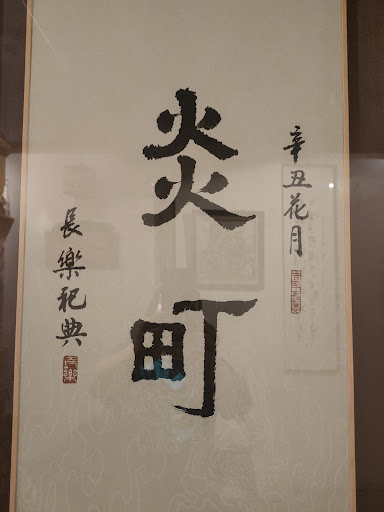 辛丑花月
炎町
長樂祀典